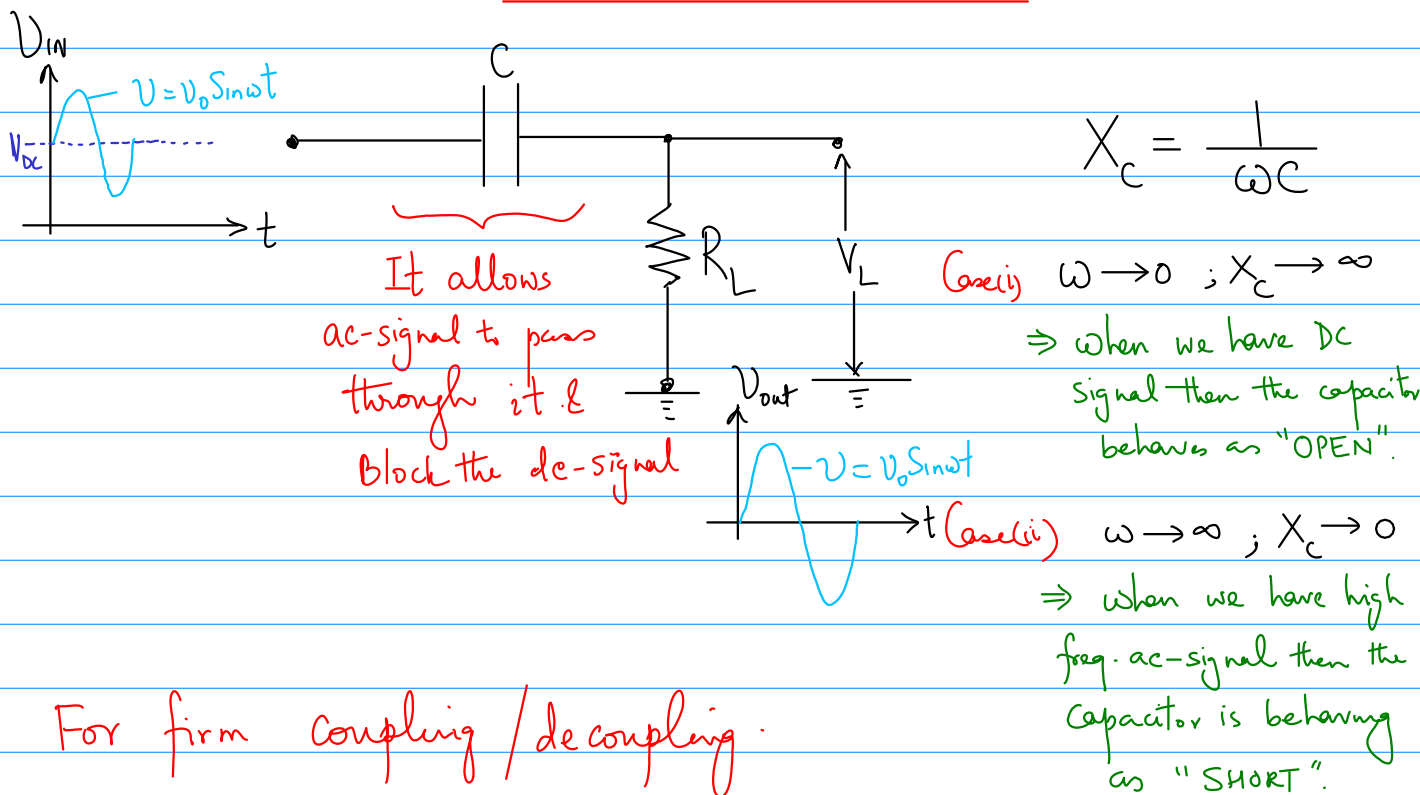 V_IN
υ = υ₀ Sinωt
V_DC
t
C
R_L
V_L
It allows
ac-signal to pass
through it &
Block the dc-signal
V_out
υ = υ₀ Sinωt
t
X_C = 1/ωC
Case(i) ω → 0 ; X_C → ∞
⇒ when we have DC
signal then the capacitor
behaves as "OPEN".
Case(ii) ω → ∞ ; X_C → 0
⇒ when we have high
freq. ac-signal then the
Capacitor is behaving
as "SHORT".
For firm coupling / decoupling.